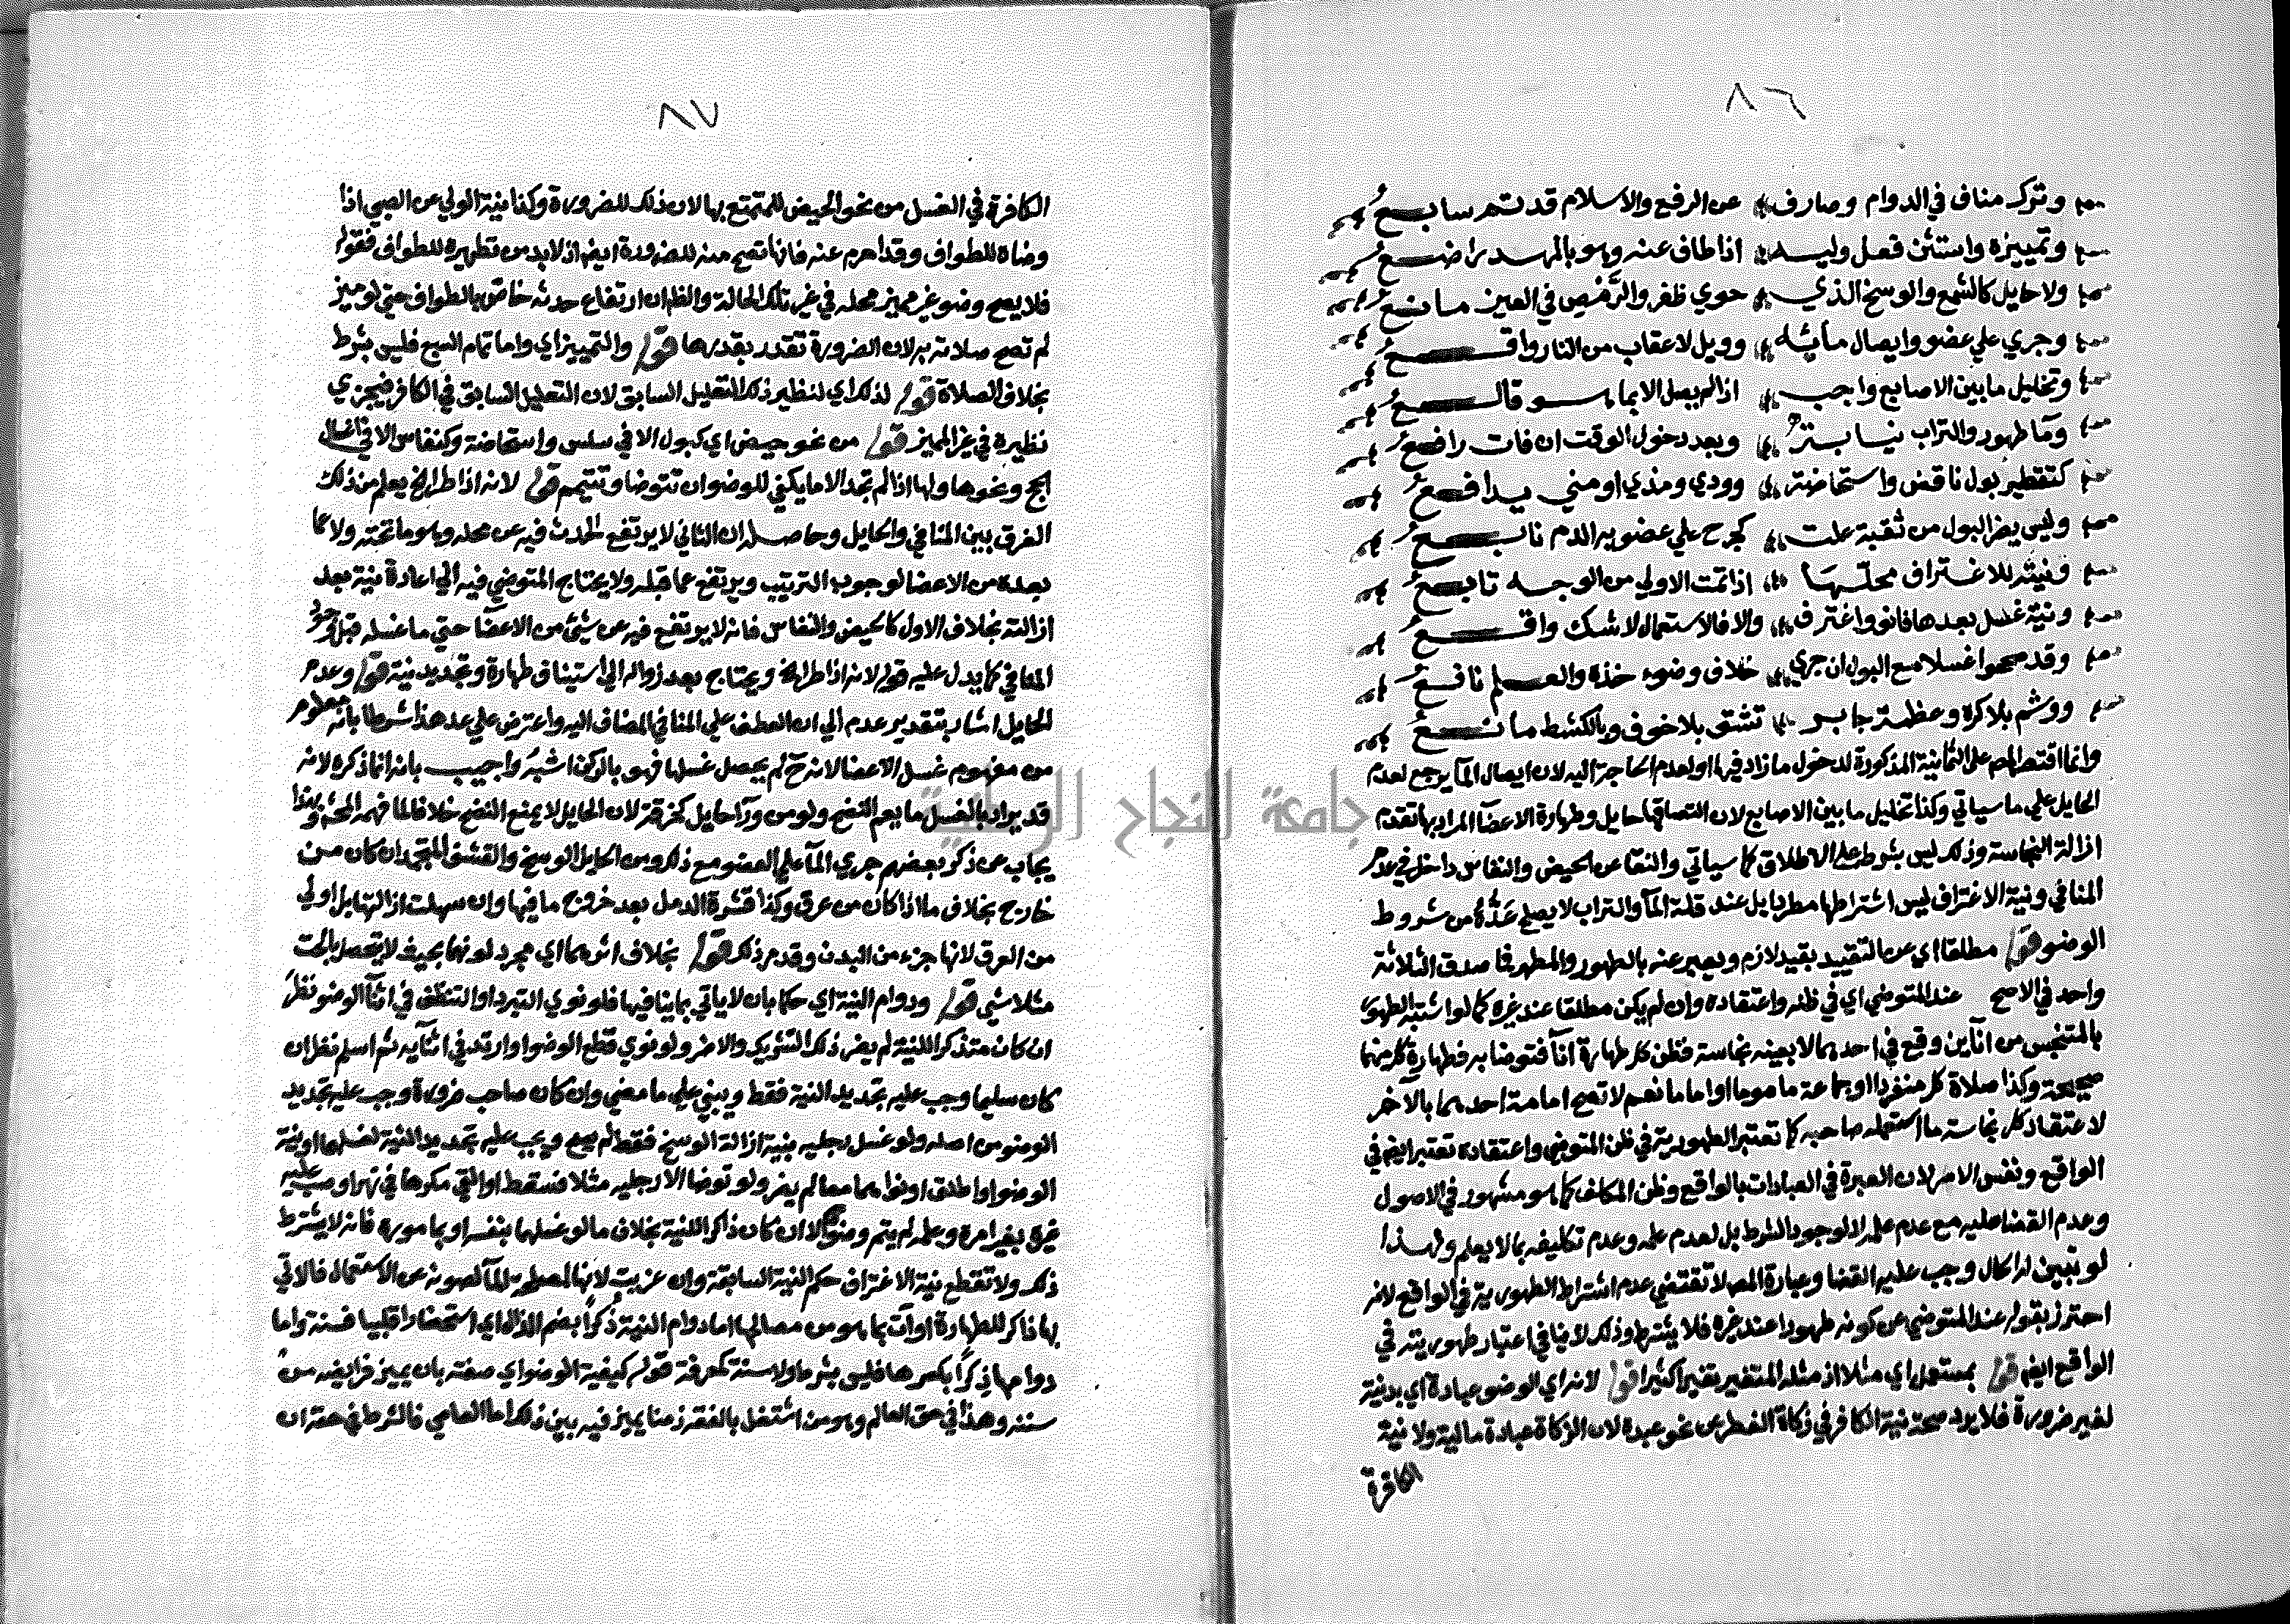 ٨٦
وترك مناف في الدوام وصارف عن الرفع والاسلام قد تم سابع
وتمييزه واستثن فعل وليه اذا طاف عنه وهو بالمهد راضع
ولا حايل كالشمع والوسخ الذي حوي ظفر والرمص في العين مانع
وجري علي عضو وايصال مائه وويل لاعقاب من النار واقع
وتخليل ما بين الاصابع واجب اذا لم يصل الا بما هو قالع
وما طهور والتراب نيابة وبعد دخول الوقت ان فات رافع
كتقطير بول ناقض واستحاضة وودي ومذي او مني يدافع
وليس يضر البول من ثقبة علت كجرح علي عضو به الدم نابع
ونيته للاغتراف محلها اذا تمت الاولي من الوجه تابع
ونية غسل بعدها فانو واغترف والا فالاستعمال لا شك واقع
وقد صححوا غسلا مع البول ان جري خلاف وضوء خذه والعلم نافع
ووشم بلا كره وعظمة جابر تشق بلا خوف وبالكشط مانع
وانما اقتصر المص على الثمانية المذكورة لدخول ما زاد فيها او لعدم الحاجة اليه لان ايصال الما يرجع لعدم
الحايل علي ما سياتي وكذا تخليل ما بين الاصابع لان التصاقها حايل وطهارة الاعضا المراد بها تقدم
ازالة النجاسة وذلك ليس بشرط علي الاطلاق كما سياتي والنقا عن الحيض والنفاس داخل في عدم
المنافي ونية الاغتراف ليس اشتراطها مطردا بل عند قلة الما والتراب لا يصلح عده من شروط
الوضو قوله مطلقا اي عن التقييد بقيد لازم ويعبر عنه بالطهور والمطهر فما صدق الثلاثة
واحد في الاصح عند المتوضي اي في ظنه واعتقاده وان لم يكن مطلقا عند غيره كما لو اشتبه الطهور
بالمتنجس من اناين وقع في احدهما لا بعينه نجاسة فظن كل طهارة انا فتوضا به فطهارة كل منهما
صحيحة وكذا صلاة كل منفردا او جماعة ماموما او اماما نعم لا تصح امامة احدهما بالاخر
لاعتقاد كل نجاسة ما استعمله صاحبه كما تعتبر الطهورية في ظن المتوضي واعتقاده تعتبر ايضا في
الواقع ونفس الامر لان العبرة في العبادات بالواقع وظن المكلف كما هو مشهور في الاصول
وعدم القضا عليه مع عدم علمه لا لوجود الشرط بل لعدم علمه وعدم تكليفه بما لا يعلم ولهذا
لو تبين له الحال وجب عليه القضا وعبارة المص لا تقتضي عدم اشتراط الطهورية في الواقع لانه
احترز بقوله عند المتوضي عن كونه طهورا عند غيره فلا يشترط وذلك لا ينافي اعتبار طهوريته في
الواقع ايضا قوله بمستعمل اي مثلا اذ مثله المتغير تغيرا كثيرا قوله لانه اي الوضو عبادة اي بدنية
لغير ضرورة فلا يرد صحة نية الكافر في زكاة الفطر عن نحو عبده لان الزكاة عبادة مالية ولا نية
الكافرة
٨٧
الكافرة في الغسل من نحو الحيض للمتمتع بها لان ذلك للضرورة وكذا نية الولي عن الصبي اذا
وضاه للطواف وقد احرم عنه فانها تصح منه للضرورة ايضا اذ لا بد من تطهيره للطواف فقوله
فلا يصح وضو غير مميز محله في غير تلك الحالة والظ ان ارتفاع حدثه خاص بالطواف حتي لو ميز
لم تصح صلاته به لان الضرورة تقدر بقدرها قوله والتمييز اي واما تمام السبع فليس بشرط
بخلاف الصلاة قوله لذلك اي لنظير ذلك التعليل السابق لان التعليل السابق في الكافر فيجزي
نظيره في غير المميز قوله من نحو حيض اي كبول الا في سلس واستحاضة وكنفاس الا في اغسال
الحج ونحوها ولها اذا لم تجد الا ما يكفي للوضو ان تتوضا وتتيمم قوله لانه اذا طرا الخ يعلم من ذلك
الفرق بين المنافي والحايل وحاصله ان الثاني لا يرتفع الحدث فيه عن محله وهو ما تحته ولا عما
بعده من الاعضا لوجوب الترتيب ويرتفع عما قبله ولا يحتاج المتوضي فيه الي اعادة نية بعد
ازالته بخلاف الاول كالحيض والنفاس فانه لا يرتفع فيه عن شيئ من الاعضا حتي ما غسله قبل وجود
المنافي كما يدل عليه قوله لانه اذا طرا الخ ويحتاج بعد زواله الي استيناف طهارة وتجديد نية قوله وعدم
الحايل اشار بتقدير عدم الي ان العطف علي المنافي المضاف اليه واعترض علي عد هذا شرطا بانه معلوم
من مفهوم غسل الاعضا لانه ح لم يحصل غسلها فهو بالركن اشبه واجيب بانه انما ذكره لانه
قد يراد بالغسل ما يعم النضح ولو من ورا حايل كخرقة لان الحايل لا يمنع النضح خلافا لما فهمه المحشي وبهذا
يجاب عن ذكر بعضهم جري الما علي العضو مع ذكره ومن الحايل الوسخ والقشف المتجمد ان كان من
خارج بخلاف ما اذا كان من عرق وكذا قشرة الدمل بعد خروج ما فيها وان سهلت ازالتها بل اولي
من العرق لانها جزء من البدن وقد مر ذلك قوله بخلاف اثرهما اي مجرد لونهما بحيث لا يتحصل بالحت
مثلا شي قوله ودوام النية اي حكما بان لا ياتي بما ينافيها فلو نوي التبرد او التنظف في اثنا الوضو نظر
ان كان متذكرا للنية لم يضر ذلك التشريك والا ضر ولو نوي قطع الوضو او ارتد في اثنايه ثم اسلم نظر ان
كان سليما وجب عليه تجديد النية فقط ويبني علي ما مضي وان كان صاحب ضرورة وجب عليه تجديد
الوضو من اصله ولو غسل رجليه بنية ازالة الوسخ فقط لم يصح ويجب عليه تجديد النية لغسلها او بنية
الوضو او اطلق او نواهما معا لم يضر ولو توضا الا رجليه مثلا فسقط او القي مكرها في نهر او صب عليه
غيره بغير امره وعلمه لم يتم وضوه الا ان كان ذاكرا للنية بخلاف ما لو غسلها بنفسه او بماموره فانه لا يشترط
ذلك ولا تقطع نية الاغتراف حكم النية السابقة وان عزبت لانها لمصلحة الما لصونه عن الاستعمال فالاتي
بها ذاكر للطهارة او ات بما هو من مصالحها اما دوام النية ذكرا بضم الذال اي استحضارا قلبيا فسنة واما
دوامها ذكرا بكسرها فليس بشرط ولا سنة كمعرفة قوله كيفية الوضو اي صفته بان يميز فرايضه من
سننه وهذا في حق العالم وهو من اشتغل بالفقه زمنا يميز فيه بين ذلك اما العامي فالشرط في حقه ان